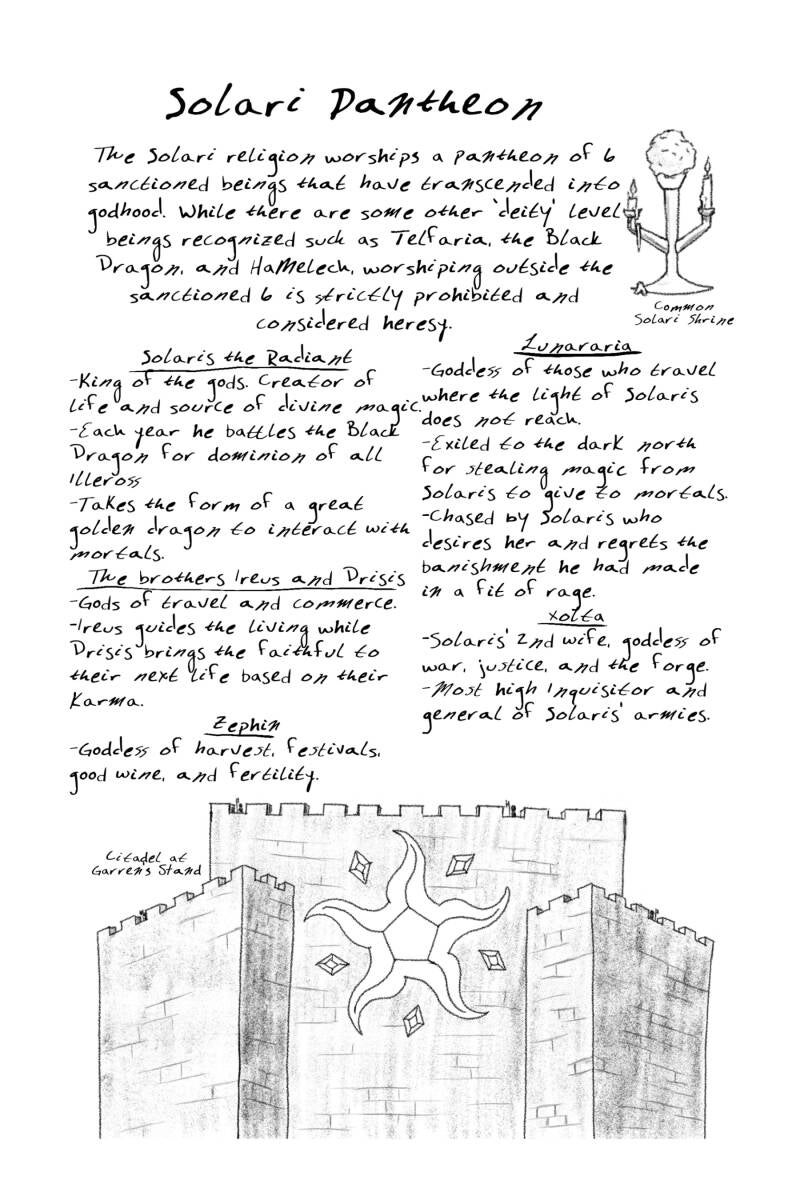 Solari Pantheon
The Solari religion worships a pantheon of 6
sanctioned beings that have transcended into
godhood. While there are some other 'deity' level
beings recognized such as Telfaria, the Black
Dragon, and HaMelech, worshiping outside the
sanctioned 6 is strictly prohibited and
considered heresy.
Common
Solari Shrine
Solaris the Radiant
-King of the gods. Creator of
life and source of divine magic.
-Each year he battles the Black
Dragon for dominion of all
Illeross
-Takes the form of a great
golden dragon to interact with
mortals.
The brothers Ireus and Drisis
-Gods of travel and commerce.
-Ireus guides the living while
Drisis brings the faithful to
their next life based on their
Karma.
Zephin
-Goddess of harvest, festivals,
good wine, and fertility.
Lunararia
-Goddess of those who travel
where the light of Solaris
does not reach.
-Exiled to the dark north
for stealing magic from
Solaris to give to mortals.
-Chased by Solaris who
desires her and regrets the
banishment he had made
in a fit of rage.
Xolta
-Solaris' 2nd wife, goddess of
war, justice, and the forge.
-Most high Inquisitor and
general of Solaris' armies.
Citadel at
Garrens Stand